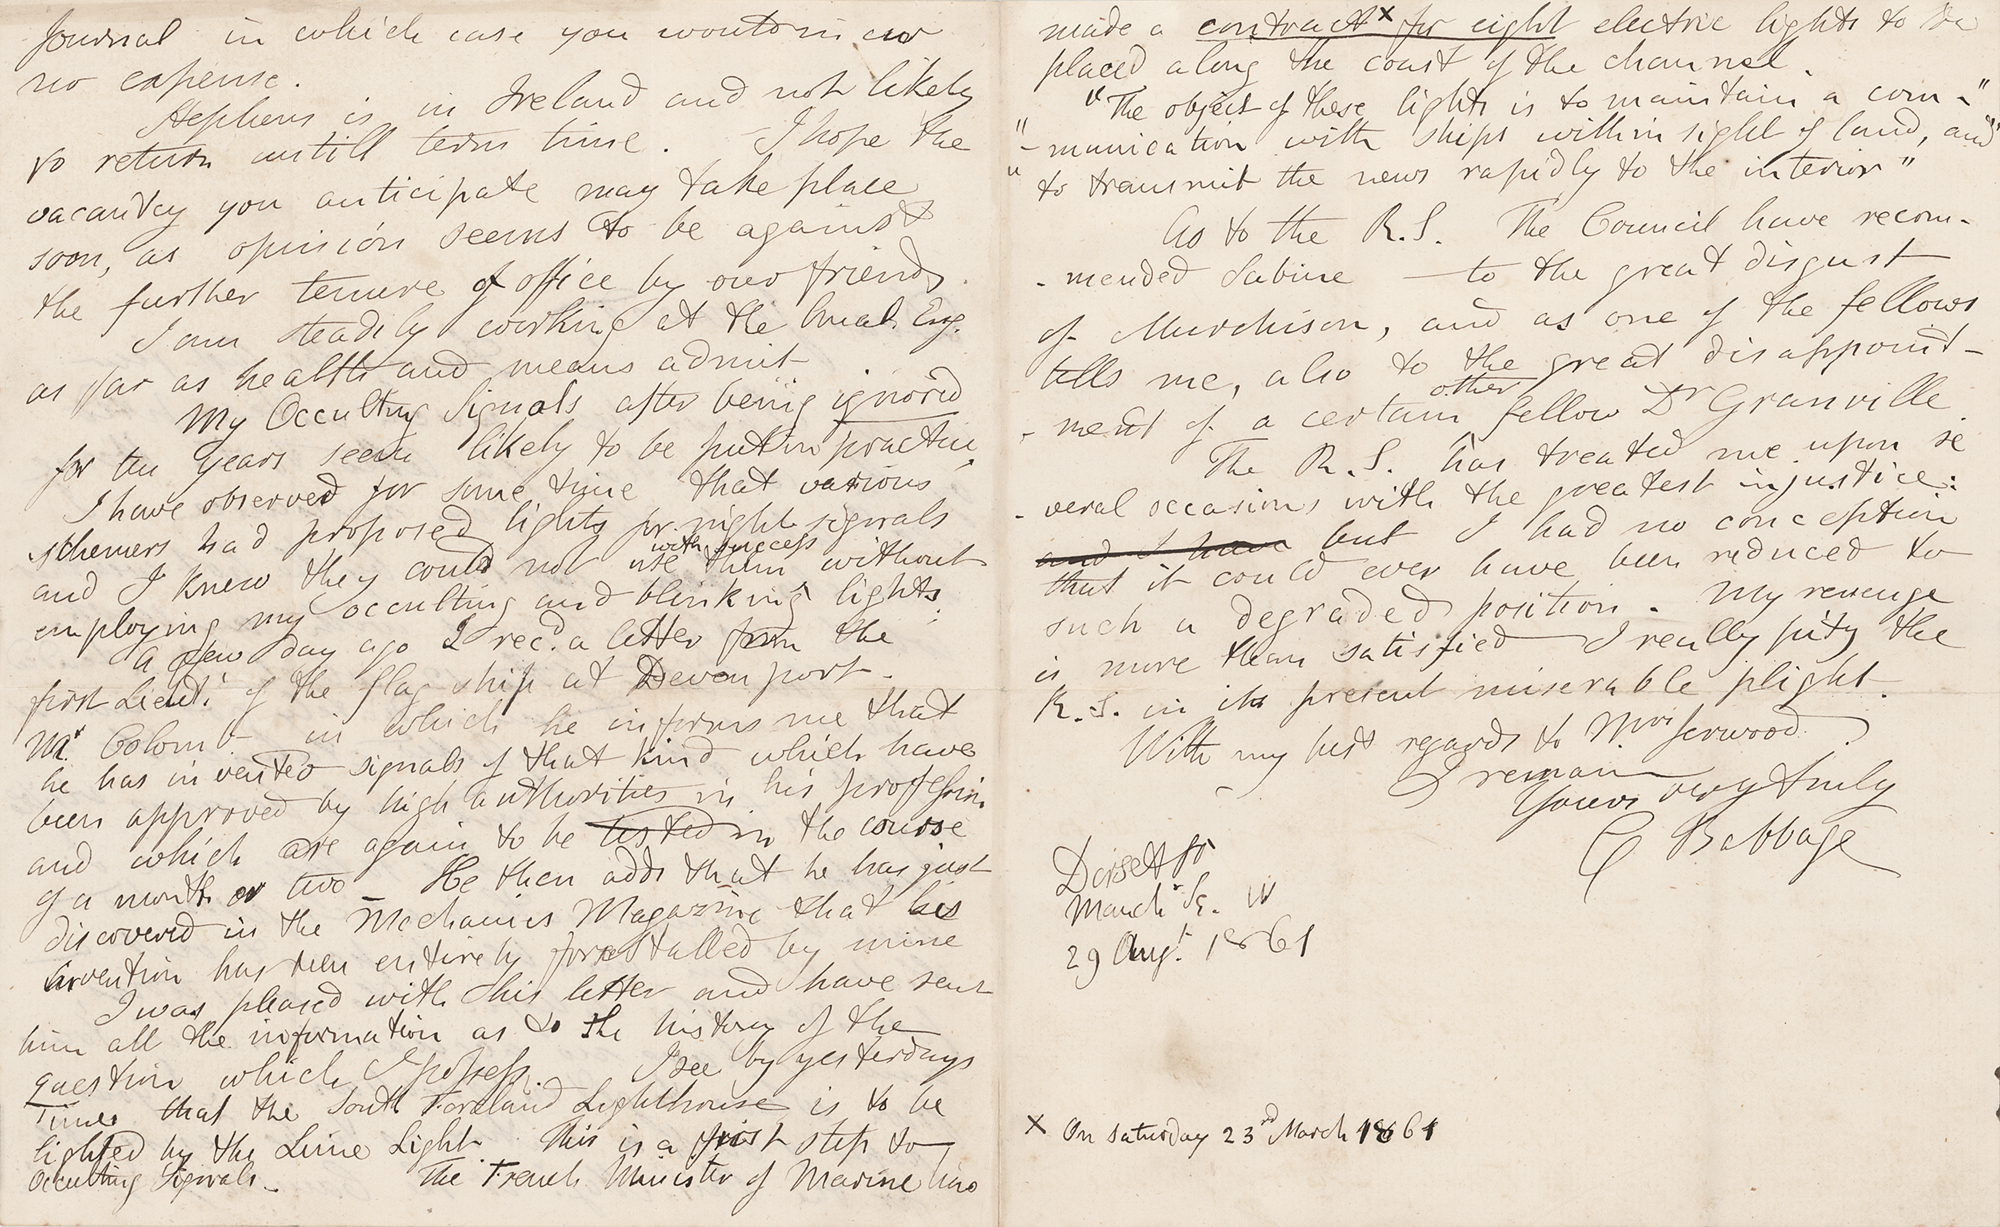 Journal in which case you would incur
no expense.
Stephens is in Ireland and not likely
to return untill term time. I hope the
vacantcy you anticipate may take place
soon, as opinion seems to be against
the further tenure of office by our friends.
I am steadily working at the Anal. Eng.
as far as health and means admit
My Occulting Signals after being ignored
for ten years seem likely to be put in practice.
I have observed for some time that various
schemers had proposed lights for night signals
and I knew they could not use them with success without
employing my occulting and blinking lights.
A few day ago I rec.d a letter from the
first Lieut.t of the flag ship at Devenport.
Mr. Colomb in which he informs me that
he has invented signals of that kind which have
been approved by high authorities in his profession
and which are again to be tested in the course
of a month or two – He then adds that he has just
discovered in the Mechanics Magazine that his
invention has been entirely forestalled by mine
I was pleased with this letter and have sent
him all the information as to the history of the
question which I possess. I see by yesterdays
Times that the South Foreland Lighthouse is to be
lighted by the Lime Light. This is a first step to
Occulting Signals. The French Minister of Marine has
made a contract x for eight electric lights to be
placed along the coast of the channel.
"The object of these lights is to maintain a com-"
"-munication with ships within sight of land, and"
" to transmit the news rapidly to the interior"
As to the R.S. The Council have recom-
-mended Sabine — to the great disgust
of Murchison, and as one of the fellows
tells me, also to the great disappoint-
-ment of a certain other fellow Dr Granville.
The R.S. has treated me upon se
-veral occasions with the greatest injustice:
and I have but I had no conception
that it could ever have been reduced to
such a degraded position. My revenge
is more than satisfied — I really pity the
R.S. in its present miserable plight.
With my best regards to Mrs
I remain
Yours very truly
C Babbage
Dorset St
Manch.r Sq. W
29 Aug.t 1861
x On Saturday 23rd March 1861